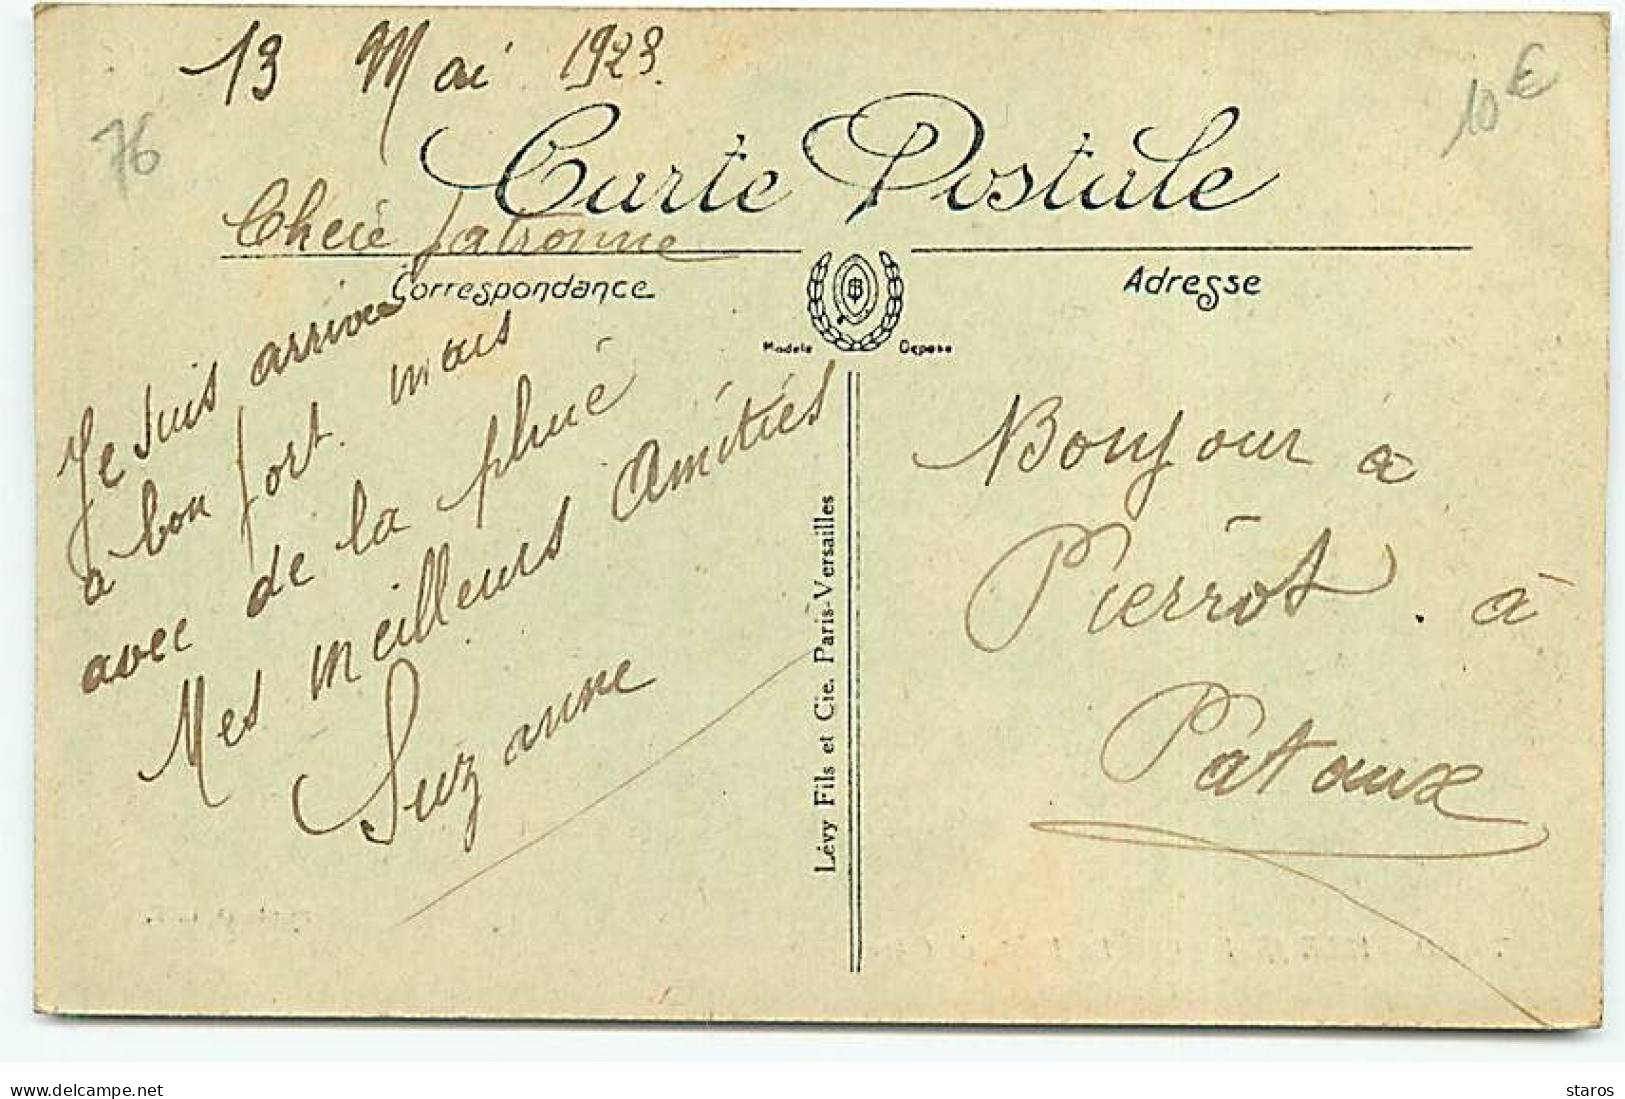 13 Mai 1923.
76
10 €
Carte Postale
Cherè Patronne
Correspondance
Adresse
Modèle Déposé
Je suis arrivée
a bon port. mais
avec de la pluie
Mes meilleurs Amitiés
Suzanne
Lévy Fils et Cie. Paris-Versailles
Bonjour à
Pierrot. à
Pataux
www.delcampe.net
staros